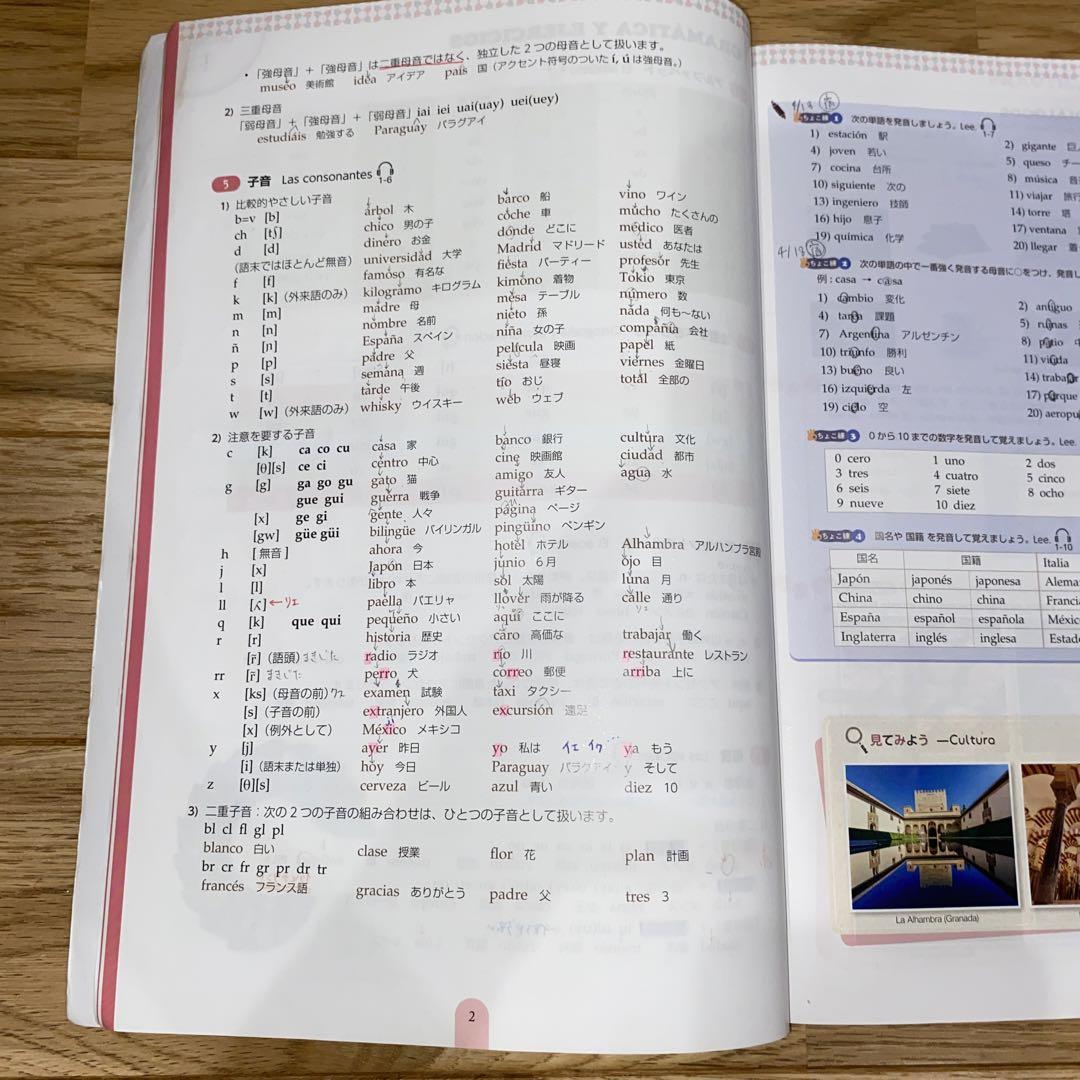 ・「強母音」＋「強母音」は二重母音ではなく、独立した２つの母音として扱います。
museo 美術館 idea アイデア país 国（アクセント符号のついた í, ú は強母音。）
2) 三重母音
「弱母音」＋「強母音」＋「弱母音」iai iei uai(uay) uei(uey)
estudiáis 勉強する Paraguay パラグアイ
5 子音 Las consonantes 1-6
1) 比較的やさしい子音
b=v [b] árbol 木 barco 船 vino ワイン
ch [tʃ] chico 男の子 coche 車 mucho たくさんの
d [d] dinero お金 dónde どこに médico 医者
（語末ではほとんど無音） universidad 大学 Madrid マドリード usted あなたは
f [f] famoso 有名な fiesta パーティー profesor 先生
k [k]（外来語のみ） kilogramo キログラム kimono 着物 Tokio 東京
m [m] madre 母 mesa テーブル número 数
n [n] nombre 名前 nieto 孫 nada 何も〜ない
ñ [ɲ] España スペイン niña 女の子 compañía 会社
p [p] padre 父 película 映画 papel 紙
s [s] semana 週 siesta 昼寝 viernes 金曜日
t [t] tarde 午後 tío おじ total 全部の
w [w]（外来語のみ） whisky ウイスキー web ウェブ
2) 注意を要する子音
c [k] ca co cu casa 家 banco 銀行 cultura 文化
[θ][s] ce ci centro 中心 cine 映画館 ciudad 都市
g [g] ga go gu gato 猫 amigo 友人 agua 水
gue gui guerra 戦争 guitarra ギター
[x] ge gi gente 人々 página ページ
[gw] güe güi bilingüe バイリンガル pingüino ペンギン
h [無音] ahora 今 hotel ホテル Alhambra アルハンブラ宮殿
j [x] Japón 日本 junio 6月 ojo 目
l [l] libro 本 sol 太陽 luna 月
ll [ʎ] ←リェ paella パエリャ llover 雨が降る calle 通り
リェ
q [k] que qui pequeño 小さい aquí ここに
r [r] historia 歴史 caro 高価な trabajar 働く
[r̄]（語頭）まきじた radio ラジオ río 川 restaurante レストラン
rr [r̄] まきじた perro 犬 correo 郵便 arriba 上に
x [ks]（母音の前） examen 試験 taxi タクシー
[s]（子音の前） extranjero 外国人 excursión 遠足
[x]（例外として） México メキシコ
y [j] ayer 昨日 yo 私は ya もう
[i]（語末または単独） hoy 今日 Paraguay パラグアイ y そして
z [θ][s] cerveza ビール azul 青い diez 10
3) 二重子音：次の２つの子音の組み合わせは、ひとつの子音として扱います。
bl cl fl gl pl
blanco 白い clase 授業 flor 花 plan 計画
br cr fr gr pr dr tr
francés フランス語 gracias ありがとう padre 父 tres 3
2
4/13 宿
ちょこ練 1 次の単語を発音しましょう。Lee. 1-7
1) estación 駅 2) gigante
4) joven 若い 5) queso
7) cocina 台所 8) música
10) siguiente 次の 11) viajar
13) ingeniero 技師 14) torre 塔
16) hijo 息子 17) ventana
19) química 化学 20) llegar
4/13 宿
ちょこ練 2 次の単語の中で一番強く発音する母音に○をつけ、発音し
例：casa → casa
1) cambio 変化 2) antiguo
4) tarea 課題 5)
7) Argentina アルゼンチン 8) patio
10) triunfo 勝利 11) viuda
13) bueno 良い 14) trabajar
16) izquierda 左 17) parque
19) cielo 空 20) aeropu
ちょこ練 3 0から10までの数字を発音して覚えましょう。Lee.
0 cero 1 uno 2 dos
3 tres 4 cuatro 5 cinco
6 seis 7 siete 8 ocho
9 nueve 10 diez
ちょこ練 4 国名や国籍を発音して覚えましょう。Lee. 1-10
国名 国籍 Italia
Japón japonés japonesa Alema
China chino china Franci
España español española Méxic
Inglaterra inglés inglesa Estad
見てみよう —Cultura
La Alhambra (Granada)